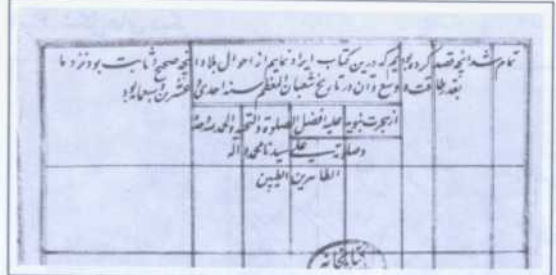 تمام شد آنچه قصد کرده بودیم که درین کتاب ایراد نماییم از احوال بلاد آنچه صحیح و ثابت بود نزد ما
بقدر طاقت و وسع و آن در تاریخ شعبان المعظم سنه احدی و عشرین و سبعمائه
از هجرت نبویه علیه افضل الصلوة و التحیه و الحمدلله
وصلوته علی سیدنا محمد و آله
الطاهرین الطیبین
کتابخانه